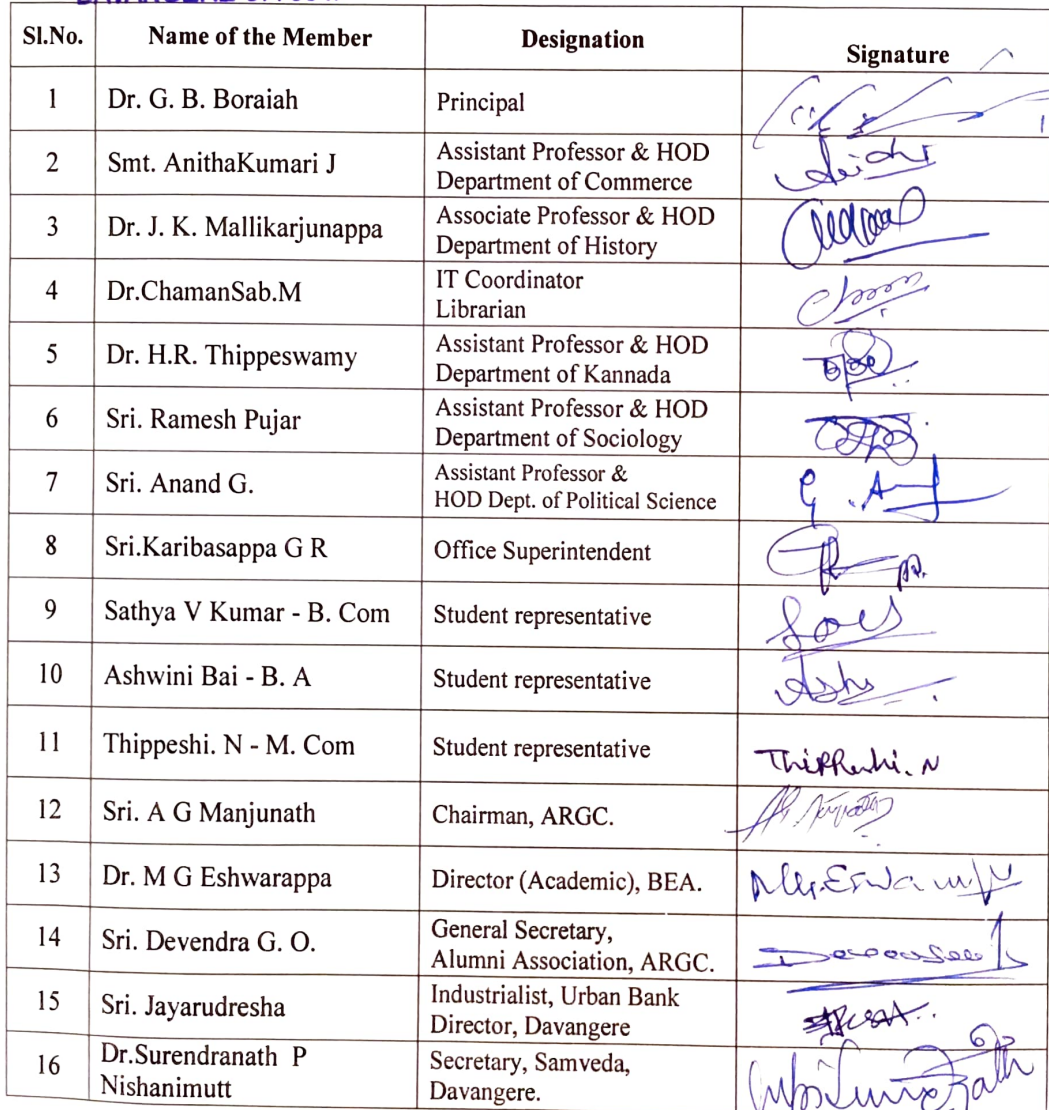 Sl.No. Name of the Member Designation Signature
1 Dr. G. B. Boraiah Principal
2 Smt. AnithaKumari J Assistant Professor & HOD
Department of Commerce
3 Dr. J. K. Mallikarjunappa Associate Professor & HOD
Department of History
4 Dr.ChamanSab.M IT Coordinator
Librarian
5 Dr. H.R. Thippeswamy Assistant Professor & HOD
Department of Kannada
6 Sri. Ramesh Pujar Assistant Professor & HOD
Department of Sociology
7 Sri. Anand G. Assistant Professor &
HOD Dept. of Political Science
8 Sri.Karibasappa G R Office Superintendent
9 Sathya V Kumar - B. Com Student representative
10 Ashwini Bai - B. A Student representative
11 Thippeshi. N - M. Com Student representative Thippeshi. N
12 Sri. A G Manjunath Chairman, ARGC.
13 Dr. M G Eshwarappa Director (Academic), BEA.
14 Sri. Devendra G. O. General Secretary,
Alumni Association, ARGC.
15 Sri. Jayarudresha Industrialist, Urban Bank
Director, Davangere
16 Dr.Surendranath P
Nishanimutt Secretary, Samveda,
Davangere.